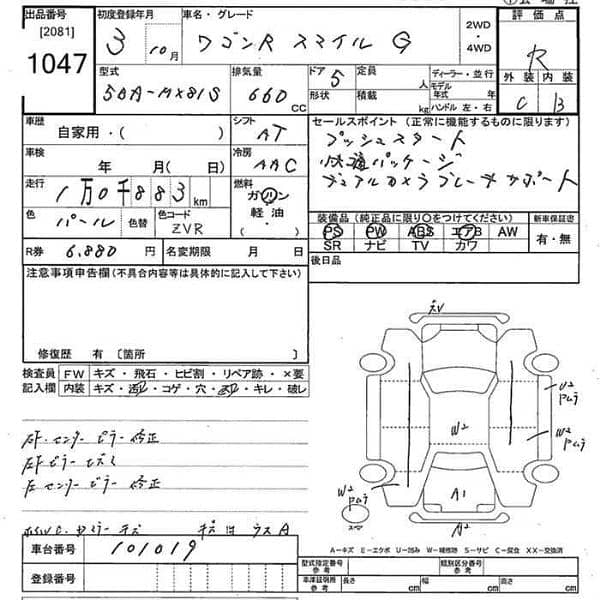 出品番号
[2081]
1047
初度登録年月
3 10月
車名・グレード
ワゴンR スマイル G
2WD
・
4WD
評価点
R
外装 内装
C B
型式
5BA-MX81S
排気量
660 CC
ドア 5
形状
定員 人
積載 kg
ディーラー・並行
モデル年式 年
ハンドル 左・右
車歴
自家用・( )
シフト
AT
車検
年 月( 日)
冷房
AAC
走行
1万0千883 km
燃料
ガソリン
軽油
・
色
パール
色替
色コード
ZVR
R券 6,880 円
名変期限 月 日
セールスポイント (正常に機能するものに限ります)
プッシュスタート
快適パッケージ
デュアルカメラブレーキサポート
装備品 (純正品に限り〇をつけてください)
新車保証書
PS PW ABS エアB AW
有・無
SR ナビ TV カワ
後日品
注意事項申告欄(不具合内容等は具体的に記入して下さい)
修復歴 有 〔箇所
検査員記入欄
FW キズ・飛石・ヒビ割・リペア跡・×要
内装 キズ・汚・コゲ・穴・スリ・キレ・破レ
右F.センター ピラー 修正
左F ピラー
左センター ピラー 修正
キズ
ウス A
車台番号
101019
登録番号
U2
W2
W2
W2
A1
A2
A-キズ E-エクボ U-凹み W-補修跡 S-サビ C-腐食 XX-交換済
型式指定番号
参考
類別区分番号
参考
車体証明所
参考
長さ cm
幅 cm
高さ cm